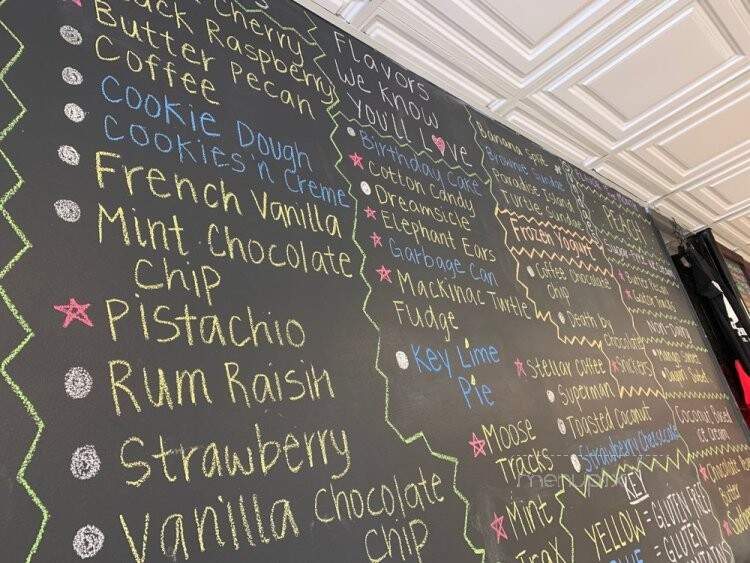 Cherry
Black Raspberry
Butter Pecan
Coffee
Cookie Dough
Cookies'n Creme
French Vanilla
Mint Chocolate
Chip
Pistachio
Rum Raisin
Strawberry
Vanilla Chocolate
Chip
Flavors
We Know
You'll Love
Birthday Cake
Cotton Candy
Dreamsicle
Elephant Ears
Garbage Can
Mackinac Turtle
Fudge
Key Lime
Pie
Moose
Tracks
Mint
Banana Split
Brownie Sundae
Paradise Island
Turtle Sundae
Frozen Yogurt
Coffee Chocolate
Chip
Death by
Chocolate
Stellar Coffee
Snickers
Superman
Toasted Coconut
Strawberry Cheesecake
KEY
YELLOW = GLUTEN FREE
BLUE = GLUTEN
PEACH
Butter Pecan
Non-Dairy
Mango Sorbet
Coconut Based
Ice Cream
Chocolate
Butter
menupix